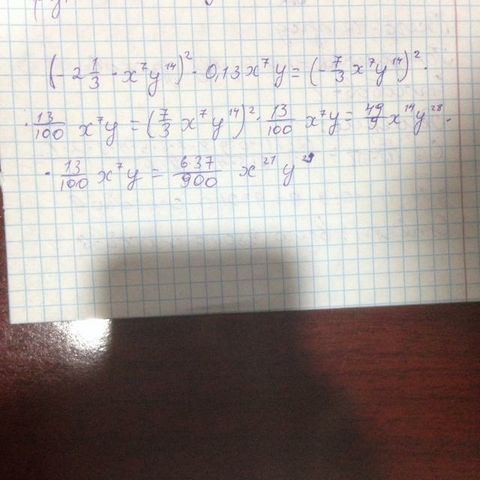 (-2 1/3 · x⁷y¹⁴)² · 0,13x⁷y = (-7/3 x⁷y¹⁴)² ·
· 13/100 x⁷y = (7/3 x⁷y¹⁴)² · 13/100 x⁷y = 49/9 x¹⁴y²⁸ ·
· 13/100 x⁷y = 637/900 x²¹y²⁹